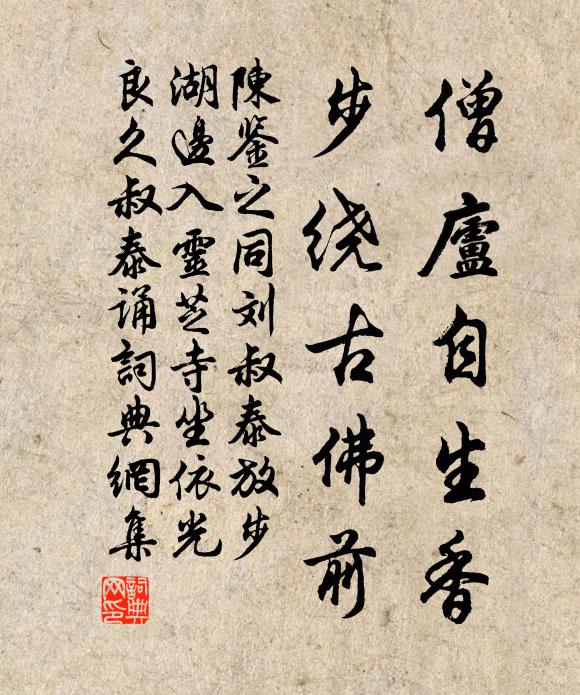 僧廬自生香
步绕古佛前
陳鉴之同刘叔泰放步
湖邊入靈芝寺坐依光
良久叔泰诵詞典網集
詞典
网印